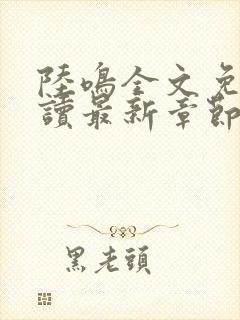 陸鳴全文免
讀最新章節
黑老頭